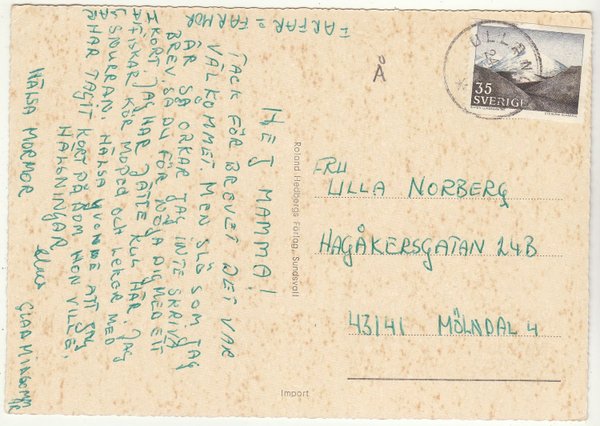 HEJ MAMMA!
TACK FÖR BREVET DET VAR
VÄLKOMMET. MEN SLÖ SOM JAG
ÄR SÅ ORKAR JAG INTE SKRIVA
BREV. SÅ DU FÅR NÖJA DIG MED ETT
KORT. JAG HAR JÄTTE KUL HÄR. JAG
FISKAR, KÖR MOPED OCH LEKER MED
SNURRAN. HÄLSA YVONNE ATT JAG
HAR TAGIT KORT PÅ DOM HON VILLE.
HÄLSNINGAR
HÄLSA MORMOR
FARFAR = FARMOR
Roland Hedbergs Förlag, Sundsvall
Import
Å
ULLÅN
35
SVERIGE
FRU
ULLA NORBERG
HAGÅKERSGATAN 24B
43141 MÖLNDAL 4